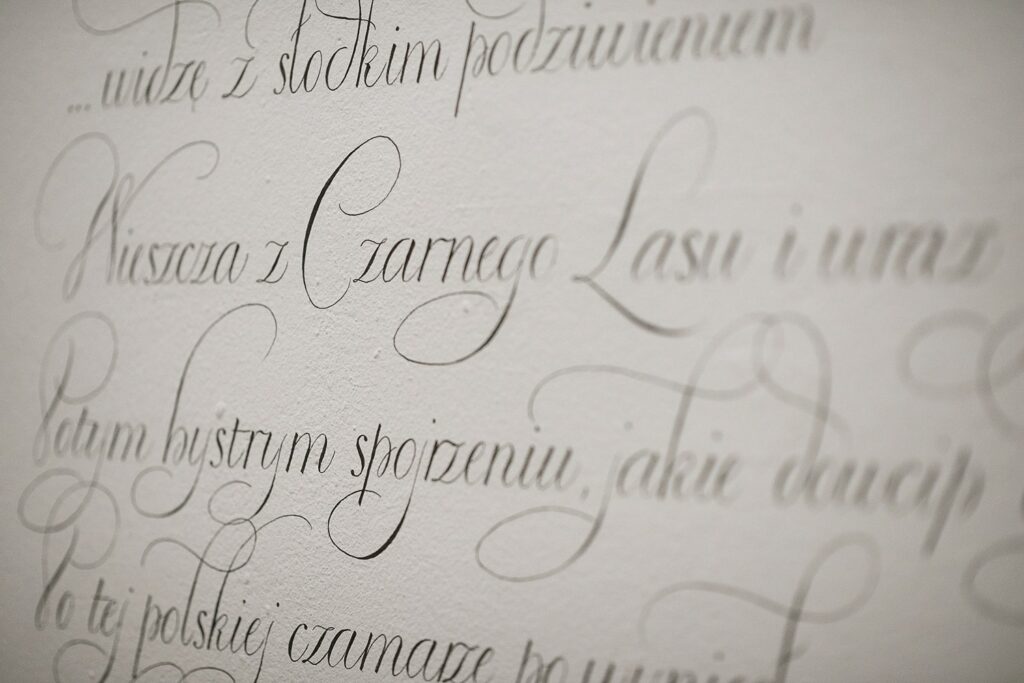 ...widzę z słodkim podziwieniem
Wieszcza z Czarnego Lasu i wraz
Potym bystrym spojrzeniu, jakie dowcip
Po tej polskiej czamarze